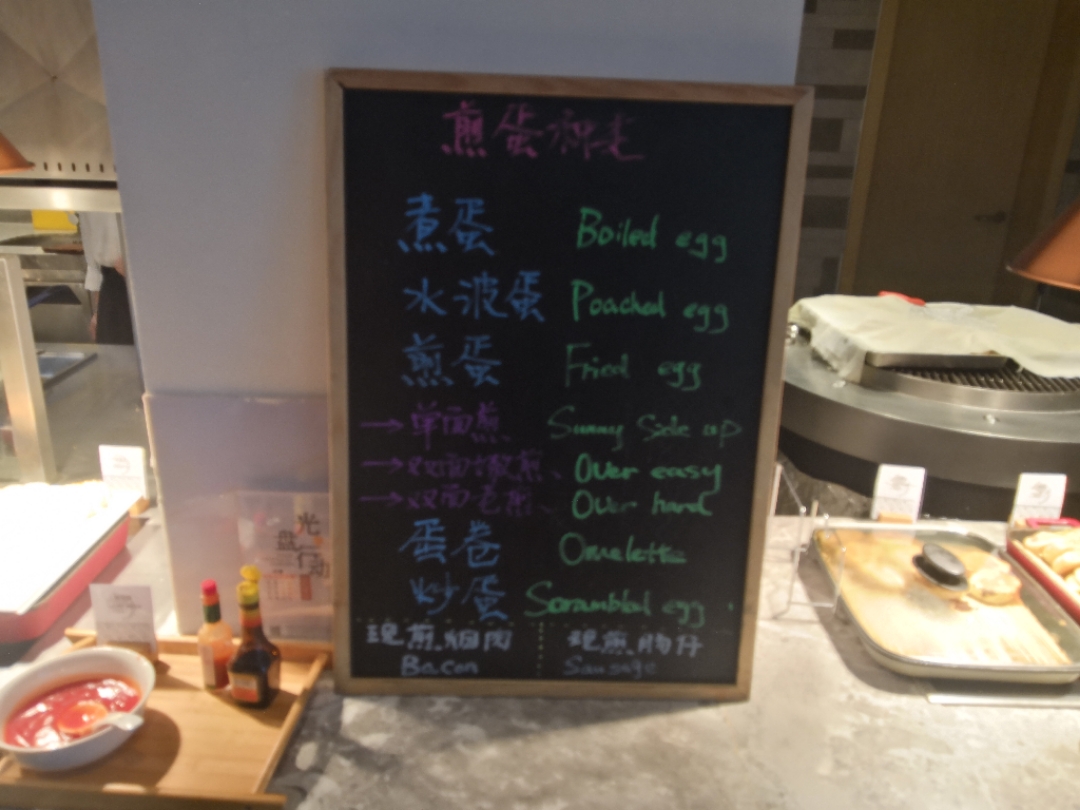 煎蛋种类
煮蛋 Boiled egg
水波蛋 Poached egg
煎蛋 Fried egg
→单面煎 Sunny Side up
→双面嫩煎、 Over easy
→双面老煎、 Over hard
蛋卷 Omelette
炒蛋 Scrambled egg
现煎烟肉 现煎肠仔
Bacon Sausage
光
盘行动